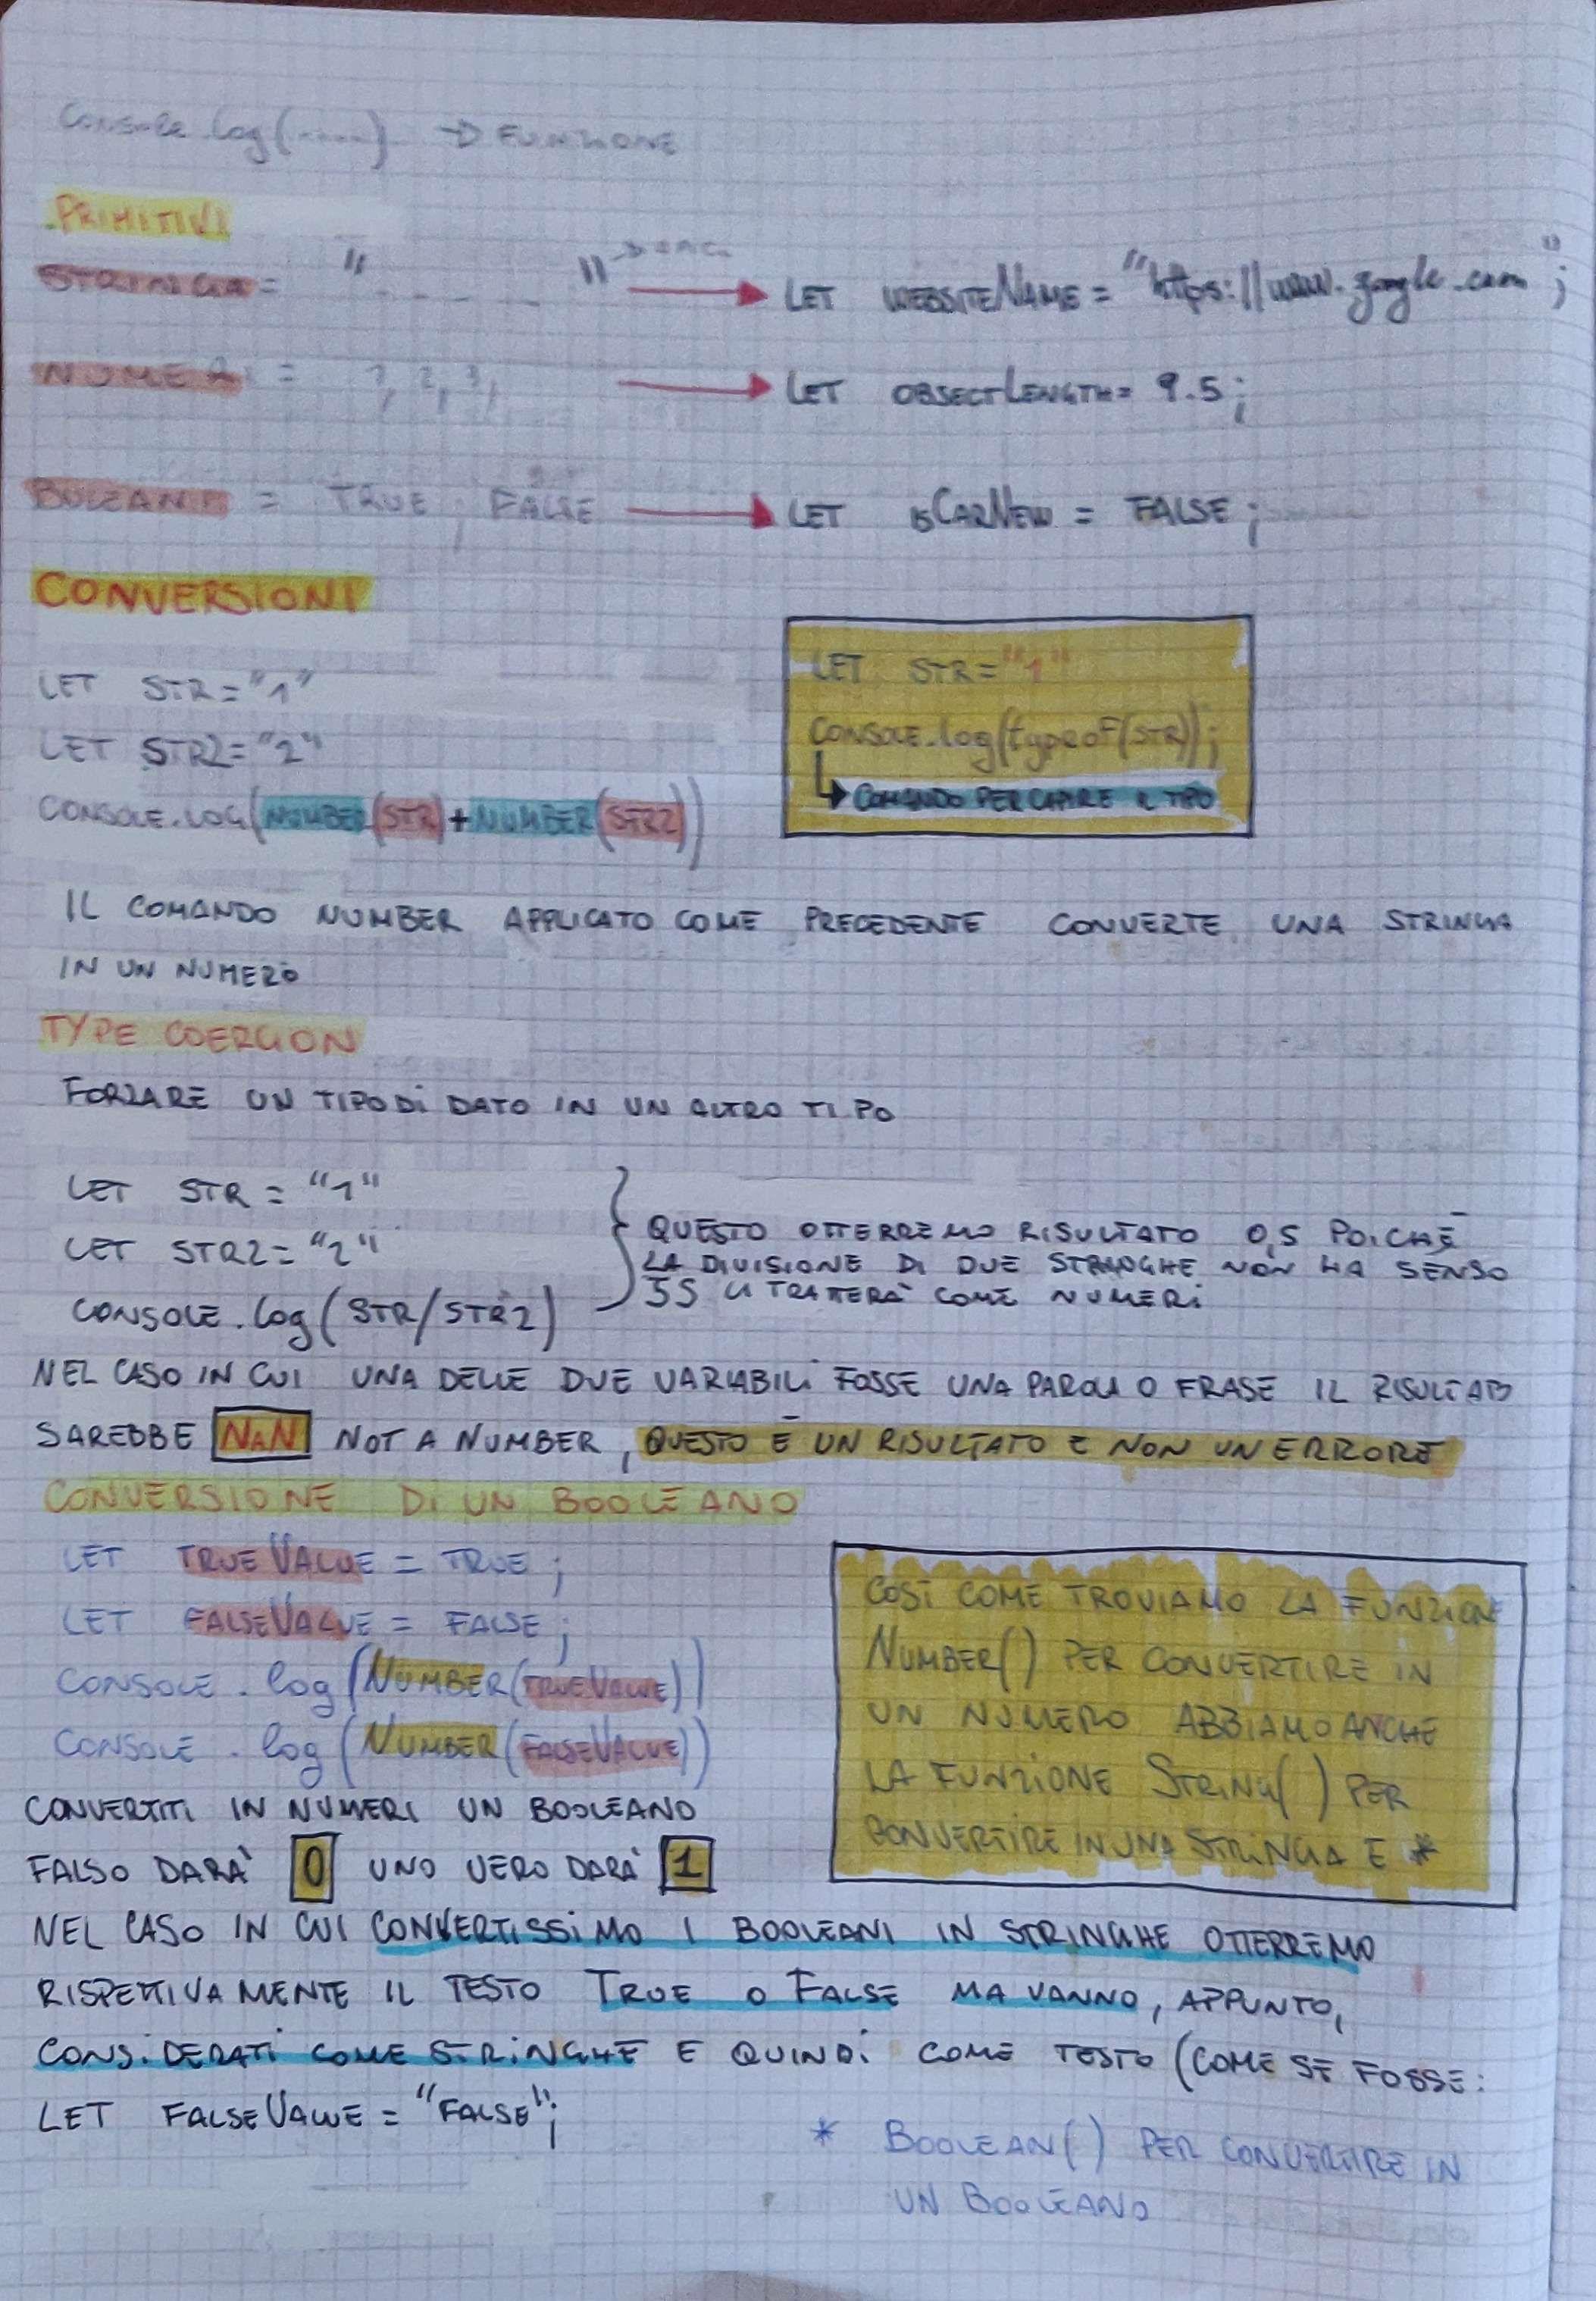 Console.log(.....) → FUNZIONE
PRIMITIVI
STRINGA = "- - - -" → LET WEBSITENAME = "https://www.google.com";
NUMERI = 1, 2, 3, → LET OBJECTLENGTH = 9.5;
BULEANI = TRUE, FALSE → LET ISCARNEW = FALSE;
CONVERSIONI
LET STR="1"
LET STR2="2"
CONSOLE.LOG(NUMBER(STR)+NUMBER(STR2))
LET STR="1"
CONSOLE.log(typeOF(STR));
↳ COMANDO PER CAPIRE IL TIPO
IL COMANDO NUMBER APPLICATO COME PRECEDENTE CONVERTE UNA STRINGA
IN UN NUMERO
TYPE COERCION
FORZARE UN TIPO DI DATO IN UN ALTRO TIPO
LET STR = "1"
LET STR2= "2"
CONSOLE.log(STR/STR2)
QUESTO OTTERREMO RISULTATO 0,5 POICHÈ
LA DIVISIONE DI DUE STRINGHE NON HA SENSO
JS LI TRATTERÀ COME NUMERI
NEL CASO IN CUI UNA DELLE DUE VARIABILI FOSSE UNA PAROLA O FRASE IL RISULTATO
SAREBBE NaN NOT A NUMBER, QUESTO È UN RISULTATO E NON UN ERRORE
CONVERSIONE DI UN BOOLEANO
LET TRUEVALUE = TRUE;
LET FALSEVALUE = FALSE;
CONSOLE.log(NUMBER(TRUEVALUE))
CONSOLE.log(NUMBER(FALSEVALUE))
COSÌ COME TROVIAMO LA FUNZIONE
NUMBER() PER CONVERTIRE IN
UN NUMERO ABBIAMO ANCHE
LA FUNZIONE STRING() PER
CONVERTIRE IN UNA STRINGA E *
CONVERTITI IN NUMERI UN BOOLEANO
FALSO DARÀ 0 UNO VERO DARÀ 1
NEL CASO IN CUI CONVERTISSIMO I BOOLEANI IN STRINGHE OTTERREMO
RISPETTIVAMENTE IL TESTO TRUE O FALSE MA VANNO, APPUNTO,
CONSIDERATI COME STRINGHE E QUINDI COME TESTO (COME SE FOSSE:
LET FALSEVALUE = "FALSE";
* BOOLEAN() PER CONVERTIRE IN
UN BOOLEANO